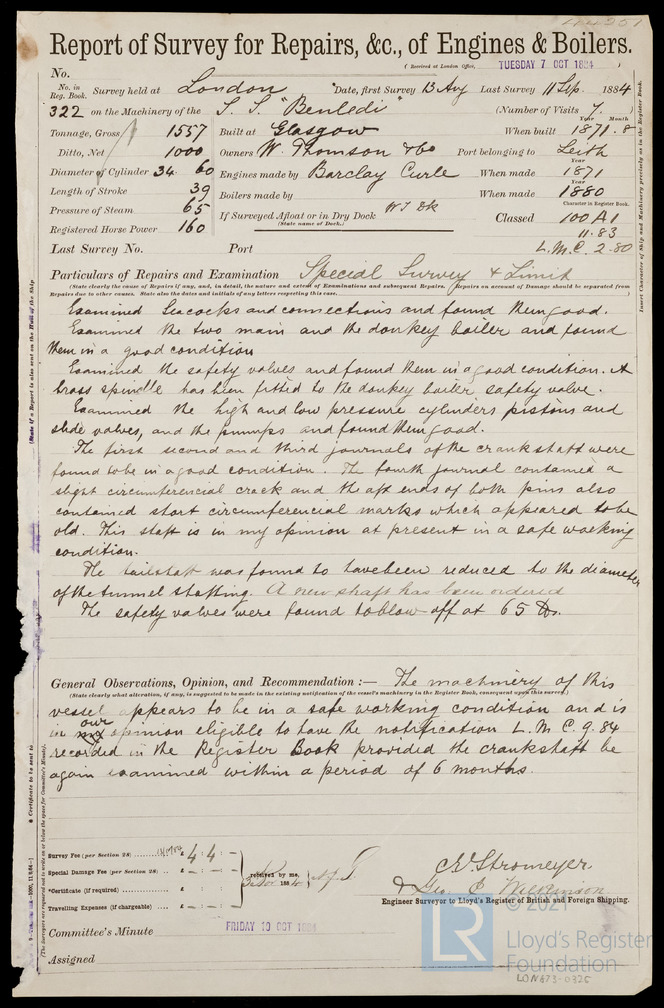 Report of Survey for Repairs, &c., of Engines & Boilers.
(Received at London Office, TUESDAY 7 OCT 1884
No.
No. in Reg. Book. Survey held at London Date, first Survey 13 Aug Last Survey 11 Sep. 1884
322 on the Machinery of the S. S. "Benledi" (Number of Visits 7.)
Tonnage, Gross 1557 Built at Glasgow When built 1871.8
Ditto, Net 1000 Owners W. Thomson & Co Port belonging to Leith
Diameter of Cylinder 34 60 Engines made by Barclay Curle When made 1871
Length of Stroke 39 Boilers made by When made 1880
Pressure of Steam 65 If Surveyed Afloat or in Dry Dock W I Dk Classed 100 A1
(State name of Dock.)
Character in Register Book.
Registered Horse Power 160 11.83
Last Survey No. Port L.M.C. 2.80
Particulars of Repairs and Examination Special Survey & Limit
(State clearly the cause of Repairs if any, and, in detail, the nature and extent of Examinations and subsequent Repairs. Repairs on account of Damage should be separated from
Repairs due to other causes. State also the dates and initials of any letters respecting this case.)
Examined Seacocks and connections and found them good.
Examined the two main and the donkey boiler and found
them in a good condition
Examined the safety valves and found them in a good condition. A
brass spindle has been fitted to the donkey boiler safety valve.
Examined the high and low pressure cylinders pistons and
slide valves, and the pumps and found them good.
The first second and third journals of the crankshaft were
found to be in a good condition. The fourth journal contained a
slight circumferencial crack and the aft ends of both pins also
contained short circumferencial marks which appeared to be
old. This shaft is in my opinion at present in a safe working
condition.
The tailshaft was found to have been reduced to the diameter
of the tunnel shafting. A new shaft has been ordered
The safety valves were found to blow off at 65 lbs.
General Observations, Opinion, and Recommendation :— The machinery of this
(State clearly what alteration, if any, is suggested to be made in the existing notification of the vessel's machinery in the Register Book, consequent upon this survey.)
vessel appears to be in a safe working condition and is
in our opinion eligible to have the notification L. M. C. 9. 84
recorded in the Register Book provided the crankshaft be
again examined within a period of 6 months.
Survey Fee (per Section 28) £ 4 : 4 : -
Special Damage Fee (per Section 28) £ - : - : -
Certificate (if required) £ - : - :
Travelling Expenses (if chargeable) £ - : - :
received by me,
C. E. Stromeyer
& Geo. C. Wilkinson
Engineer Surveyor to Lloyd's Register of British and Foreign Shipping.
Committee's Minute FRIDAY 10 OCT 1884
Assigned
© 2021
LR Lloyd's Register
Foundation
LDN673-0325
(State if a Report is also sent on the Hull of the Ship
Insert Character of Ship and Machinery precisely as in the Register Book.
Certificate to be sent to
(The Surveyors are requested not to write on or below the space for Committee's Minute).